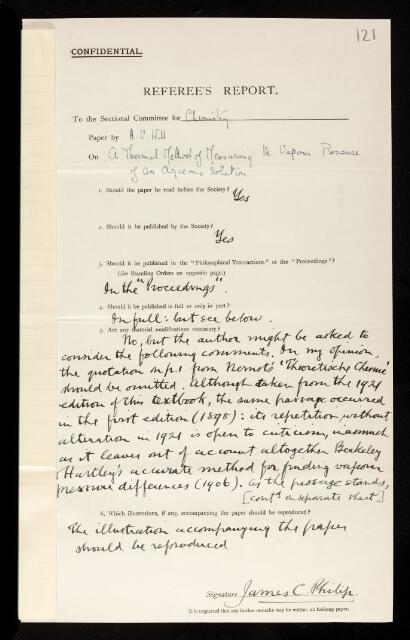 121
CONFIDENTIAL.
REFEREE'S REPORT.
To the Sectional Committee for Chemistry
Paper by A. V. Hill
On A Thermal Method of Measuring the Vapour Pressure
of an Aqueous Solution
1. Should the paper be read before the Society? Yes
2. Should it be published by the Society?
Yes
3. Should it be published in the "Philosophical Transactions" or the "Proceedings"?
(See Standing Orders on opposite page.)
In the "Proceedings".
4. Should it be published in full or only in part?
In full: but see below.
5. Are any material modifications necessary?
No, but the author might be asked to
consider the following comments. In my opinion
the quotation on p.1 from Nernst's 'Theoretische Chemie'
should be omitted. Although taken from the 1921
edition of this textbook, the same passage occurred
in the first edition (1898): its repetition without
alteration in 1921 is open to criticism, inasmuch
as it leaves out of account altogether Berkeley
Hartley's accurate method for finding vapour
pressure differences (1906). As the passage stands,
[contd on separate sheet.]
6. Which illustrations, if any, accompanying the paper should be reproduced?
The illustration accompanying the paper
should be reproduced
Signature James C. Philip.
It is requested that any further remarks may be written on foolscap paper.